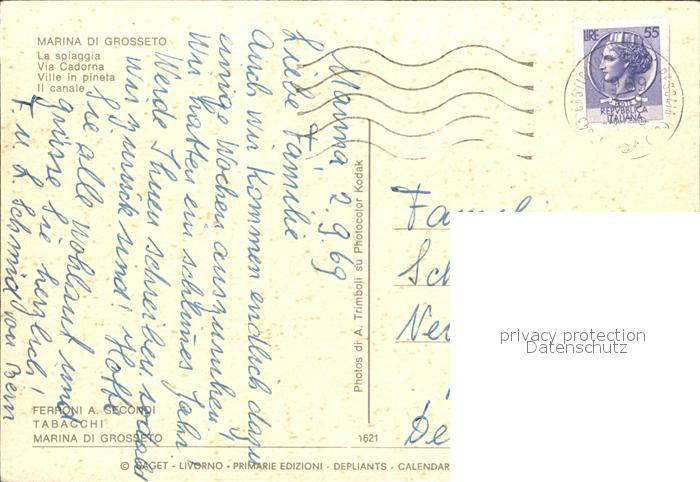 MARINA DI GROSSETO
La spiaggia
Via Cadorna
Ville in pineta
Il canale
LIRE 55
POSTE
REPVBBLICA
ITALIANA
Marina 2.9.69
Liebe Familie
Auch wir kommen endlich dazu
einige Wochen auszuruhen!
Wir hatten ein schlimmes Jahr.
Werde Ihnen schreiben sobald
wir zurück sind! Hoffe
Sie alle Wohlauf und
grüsse Sie herzlich!
F. u. L. Schmid von Bern
Photos di A. Trimboli su Photocolor Kodak
Familie
Sch
Ne
De
privacy protection
Datenschutz
FERRONI A. SECONDI
TABACCHI
MARINA DI GROSSETO
1621
© SAGET - LIVORNO - PRIMARIE EDIZIONI - DEPLIANTS - CALENDAR